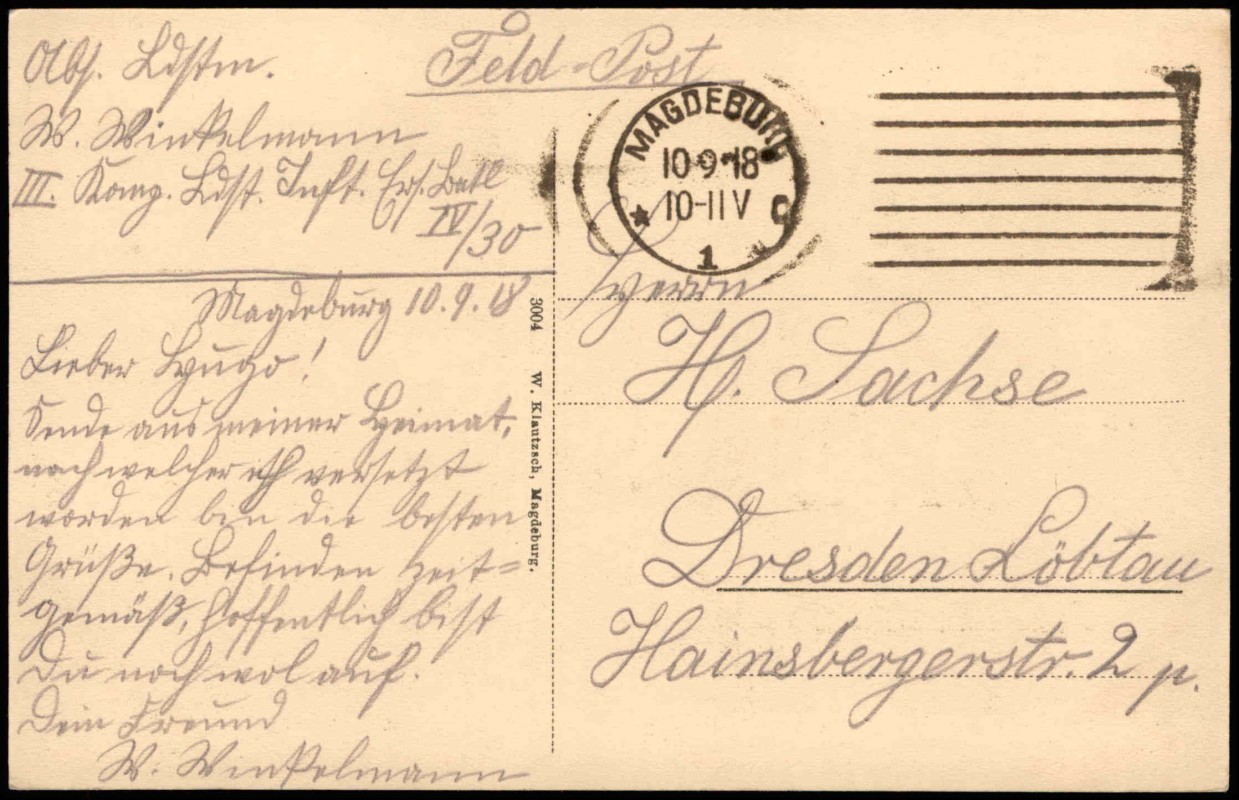 Feld-Post
Abs. Ldstm.
W. Winkelmann
III. Komp. Ldst. Inft. Ers. Batl
IV/30
MAGDEBURG
10-9-18
10-11 V
* 1 * C
Magdeburg 10.9.18
Lieber Hugo!
Sende aus meiner Heimat,
nach welcher ich versetzt
worden bin die besten
Grüße. Befinden zeit=
gemäß, hoffentlich bist
Du noch wol auf.
Dein Freund
W. Winkelmann
3004 W. Klautzsch, Magdeburg.
Herrn
H. Sachse
Dresden Löbtau
Hainsbergerstr. 2 p.